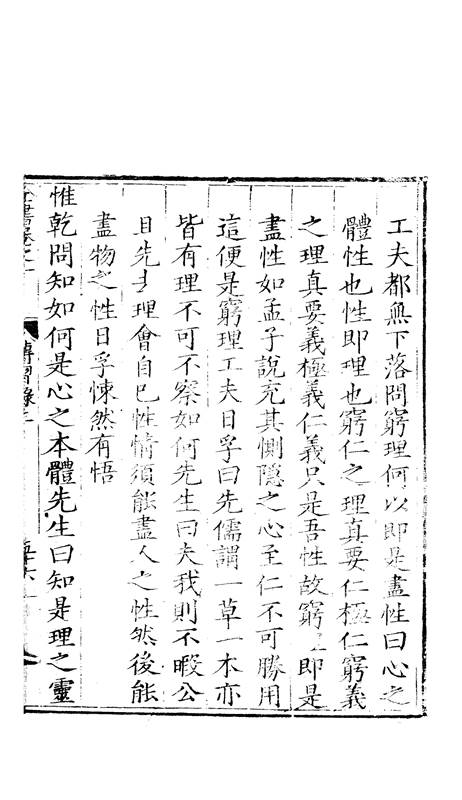 工夫都無下落問窮理何以即是盡性曰心之
體性也性即理也窮仁之理真要仁極仁窮義
之理真要義極義仁義只是吾性故窮理即是
盡性如孟子說充其惻隱之心至仁不可勝用
這便是窮理工夫日孚曰先儒謂一草一木亦
皆有理不可不察如何先生曰夫我則不暇公
且先去理會自己性情須能盡人之性然後能
盡物之性日孚悚然有悟
惟乾問知如何是心之本體先生曰知是理之靈
傳習錄上